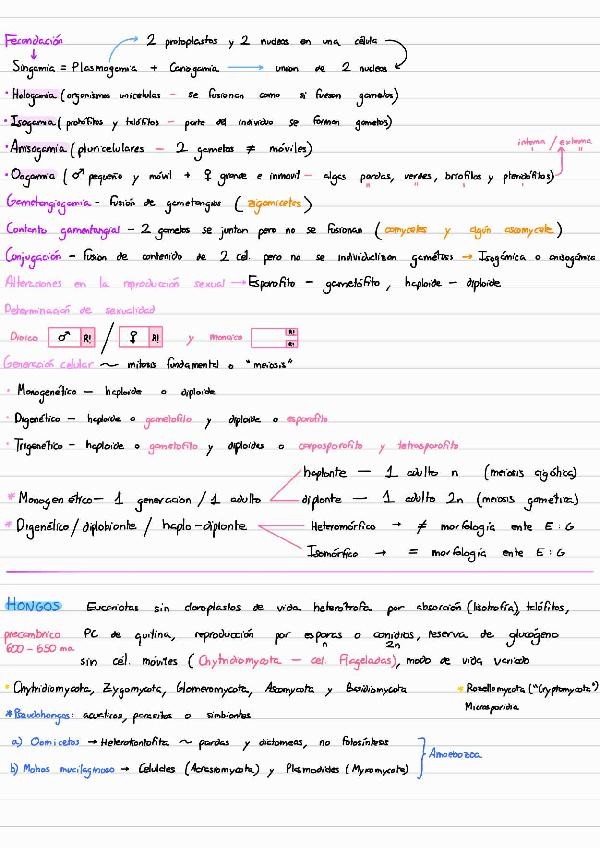 Fecundación 2 protoplastos y 2 nucleos en una célula
Singamia = Plasmogamia + Cariogamia → union de 2 nucleos
• Hologamia (organismos unicelulas – se fusionan como si fuesen gametos)
• Isogamia (protófitos y talófitos – parte del individuo se forman gametos)
• Anisogamia (pluricelulares – 2 gametos ≠ móviles) interna / externa
• Oogamia (♂ pequeño y móvil + ♀ grande e inmovil – algas pardas, verdes, briofitos y pteridofitos)
Gametangiogamia – fusión de gametangios (zigomicetes)
Contanto gamentangial – 2 gametos se juntan pero no se fusionan (oomycetes y algún ascomycete)
Conjugación – fusion de contenido de 2 cel. pero no se individualizan gametos → Isogámica o anisogámica
Alteraciones en la reproducción sexual → Esporofito – gametófito, haploide – diploide
Determinación de sexualidad
Dioico ♂ R! / ♀ R! y monoico R! R!
Generación celular ~ mitosis fundamental o "meiosis"
• Monogenético – haploide o diploide
• Digenético – haploide o gametofito y diploide o esporofito
• Trigenético – haploide o gametofito y diploides o carposporofito y tetrasporofito
haplonte – 1 adulto n (meiosis cigótica)
* Monogenético – 1 generacion / 1 adulto diplonte – 1 adulto 2n (meiosis gametica)
* Digenético / diplobionte / haplo-diplonte Heteromórfico → ≠ morfología ente E : G
Isomórfico → = morfología ente E : G
HONGOS Eucariotas sin cloroplastos de vida heterótrofa por absorción (lisotrofía), talófitos,
precambrico PC de quitina, reproducción por esporas o conidios, reserva de glucógeno
600 – 650 ma n 2n
sin cél. móviles (Chytridiomycota – cel. flageladas), modo de vida variado
* Chytridiomycota, Zygomycota, Glomeromycota, Ascomycota y Basidiomycota * Rozellomycota ("Cryptomycota")
Microsporidia
* Pseudohongos: acuaticos, parasitos o simbiontes
a) Oomicetos → Heterokontofita ~ pardas y diatomeas, no fotosíntesis
Amoebozoa
b) Mohos mucilaginoso → Celulales (Acrasiomycota) y Plasmodides (Myxomycota)